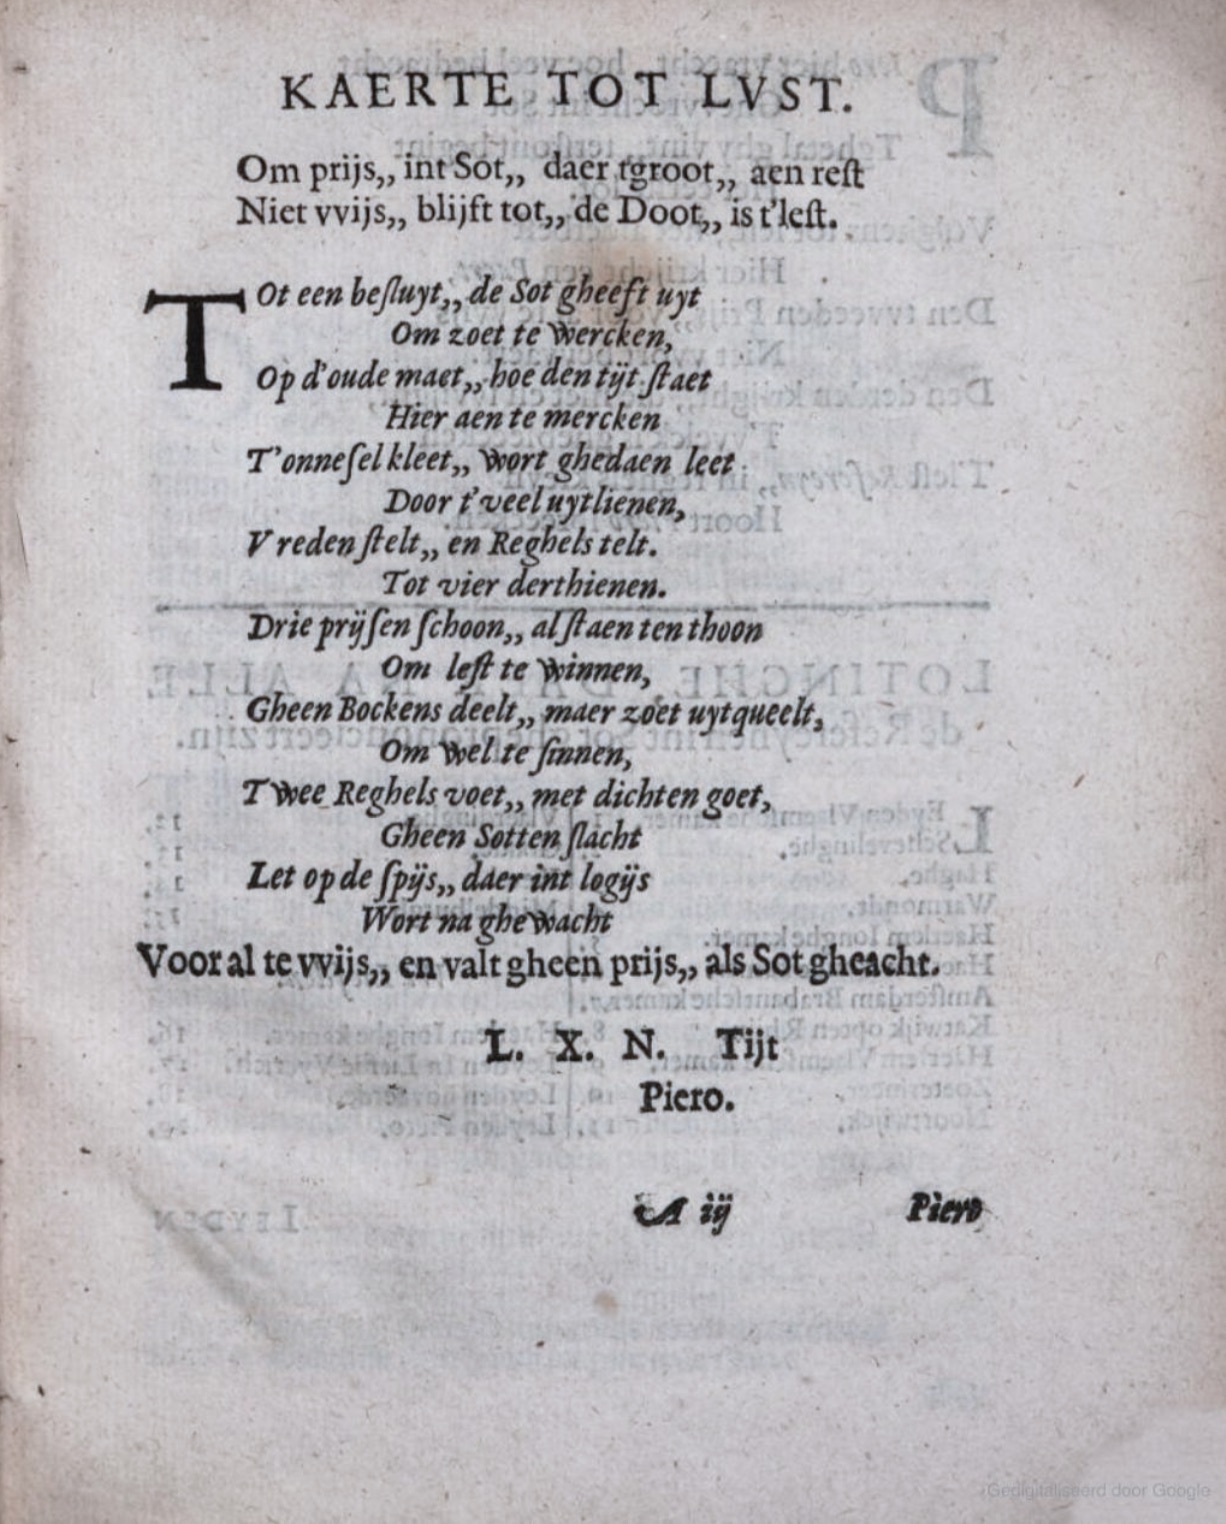 KAERTE TOT LVST.
Om prijs,, int Sot,, daer tgroot,, aen reſt
Niet vvijs,, blijft tot,, de Doot,, is t'leſt.
TOt een beſluyt,, de Sot gheeft uyt
Om zoet te wercken,
Op d'oude maet,, hoe den tijt ſtaet
Hier aen te mercken
T'onneſel kleet,, wort ghedaen leet
Door t'veel uytlienen,
Vreden ſtelt,, en Reghels telt.
Tot vier derthienen.
Drie prijſen ſchoon,, al ſtaen ten thoon
Om leſt te winnen,
Gheen Bockens deelt,, maer zoet uytqueelt,
Om wel te ſinnen,
Twee Reghels voet,, met dichten goet,
Gheen Sotten ſlacht
Let op de ſpijs,, daer int logijs
Wort na ghewacht
Voor al te vvijs,, en valt gheen prijs,, als Sot gheacht.
L. X. N. Tijt
Piero.
A ij Piero
Gedigitaliseerd door Google